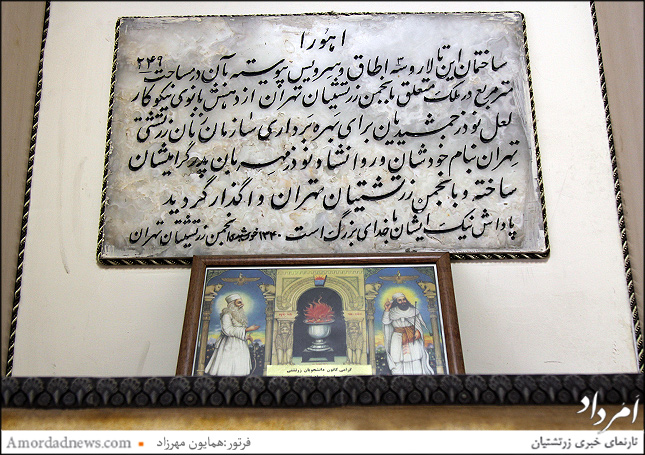 اهورا
ساختمان این تالار و سه اطاق و سرویس پیوسته بآن در مساحت ۲۴۹
متر مربع در ملک متعلق بانجمن زرتشتیان تهران از دهش بانوی نیکوکار
لعل نوذر جمشیدیان برای بهره برداری سازمان زنان زرتشتی
تهران بنام خودشان و روانشاد نوذر مهربان پدر گرامیشان
ساخته و بانجمن زرتشتیان تهران واگذار گردید
پاداش نیک ایشان با خدای بزرگ است ۱۳۴۰ خورشیدی انجمن زرتشتیان تهران
گرامی کانون دانشجویان زرتشتی
اَمرداد
تارنمای خبری زرتشتیان
فرتور:همایون مهرزاد
Amordadnews.com